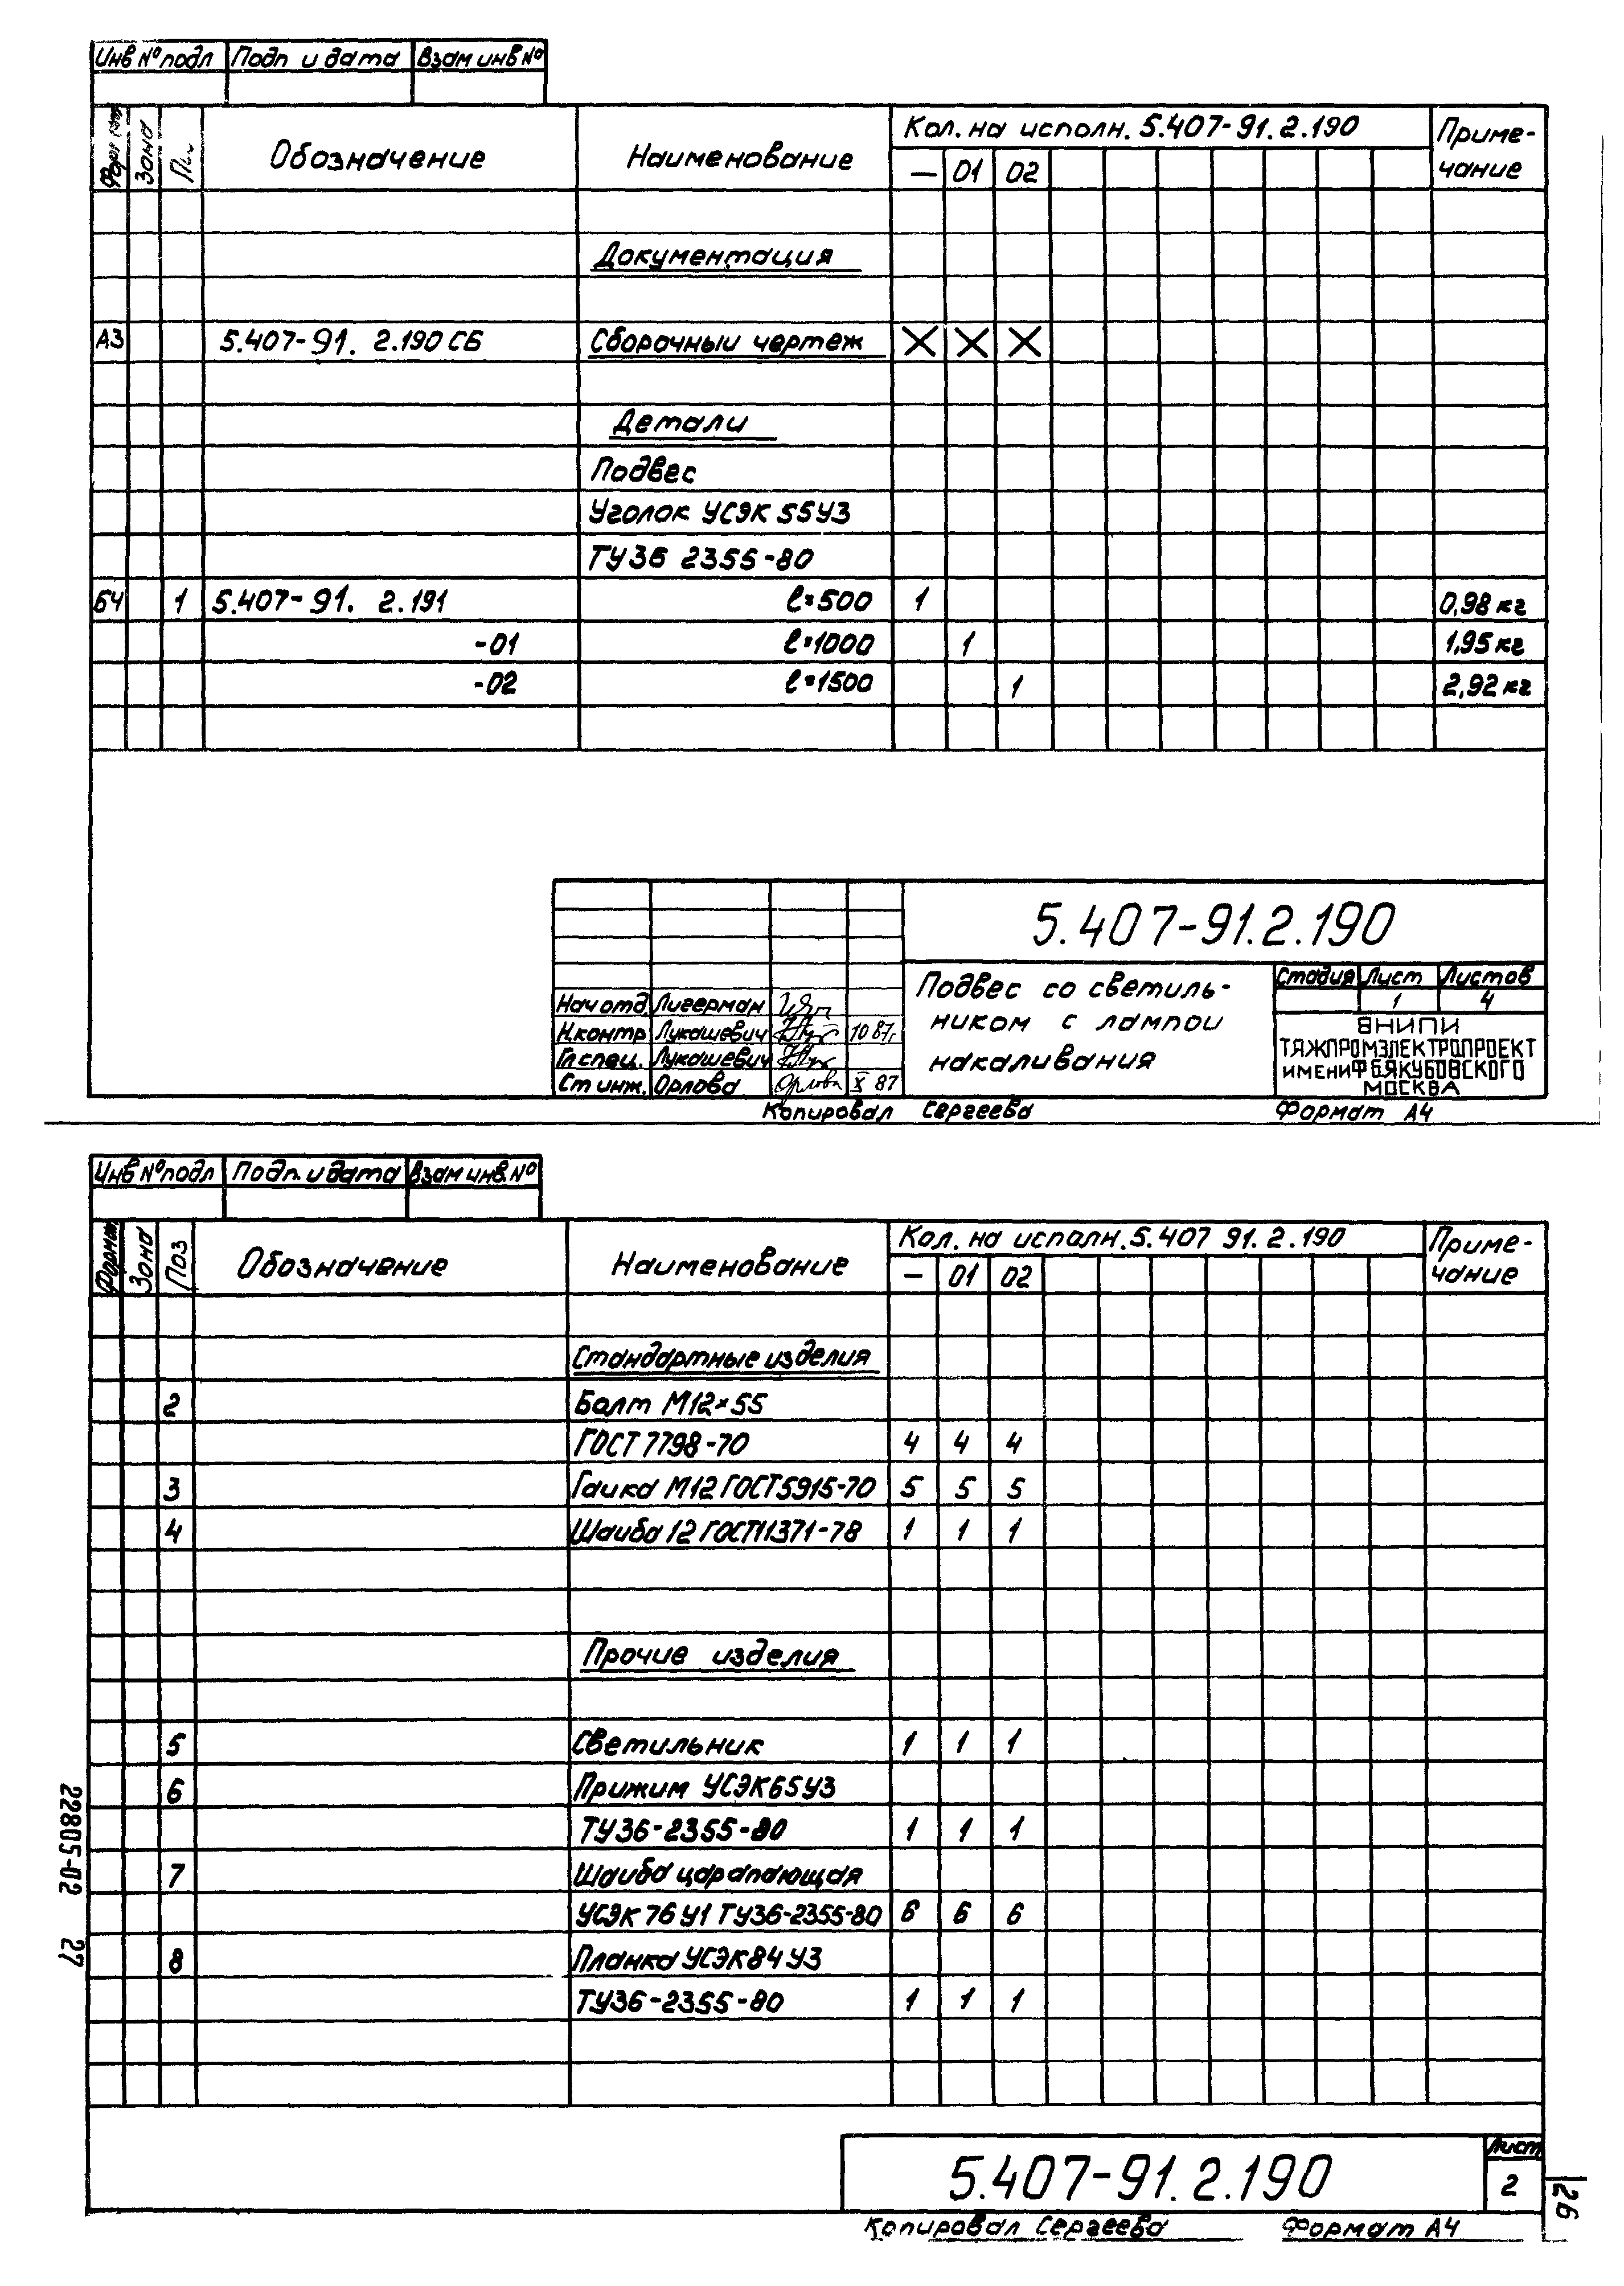 Инв №подл Подп и дата Взам инв №
Зона Обозначение Наименование Кол. на исполн. 5.407-91.2.190 Приме-
— 01 02 чание
Документация
А3 5.407-91. 2.190 СБ Сборочный чертеж X X X
Детали
Подвес
Уголок УСЭК 55У3
ТУ36 2355-80
БЧ 1 5.407-91. 2.191 ℓ=500 1 0,98 кг
-01 ℓ=1000 1 1,95 кг
-02 ℓ=1500 1 2,92 кг
5.407-91.2.190
Подвес со светиль-
ником с лампой
накаливания
Стадия Лист Листов
1 4
Нач отд. Лигерман
Н.контр Лукашевич 10 87г.
Гл спец. Лукашевич
Ст инж. Орлова Орлова X 87
ВНИПИ
ТЯЖПРОМЭЛЕКТРОПРОЕКТ
ИМЕНИ Ф Б ЯКУБОВСКОГО
МОСКВА
Копировал Сергеева Формат А4
Инв №подл Подп. и дата Взам инв. №
Формат Зона Поз Обозначение Наименование Кол. на исполн. 5.407 91.2.190 Приме-
— 01 02 чание
Стандартные изделия
2 Болт М12×55
ГОСТ 7798-70 4 4 4
3 Гайка М12 ГОСТ5915-70 5 5 5
4 Шайба 12 ГОСТ11371-78 1 1 1
Прочие изделия
5 Светильник 1 1 1
6 Прижим УСЭК65У3
ТУ36-2355-80 1 1 1
7 Шайба царапающая
УСЭК 76 У1 ТУ36-2355-80 6 6 6
8 Планка УСЭК84 У3
ТУ36-2355-80 1 1 1
22805-02 27
5.407-91.2.190
Лист
2
Копировал Сергеева Формат А4
26